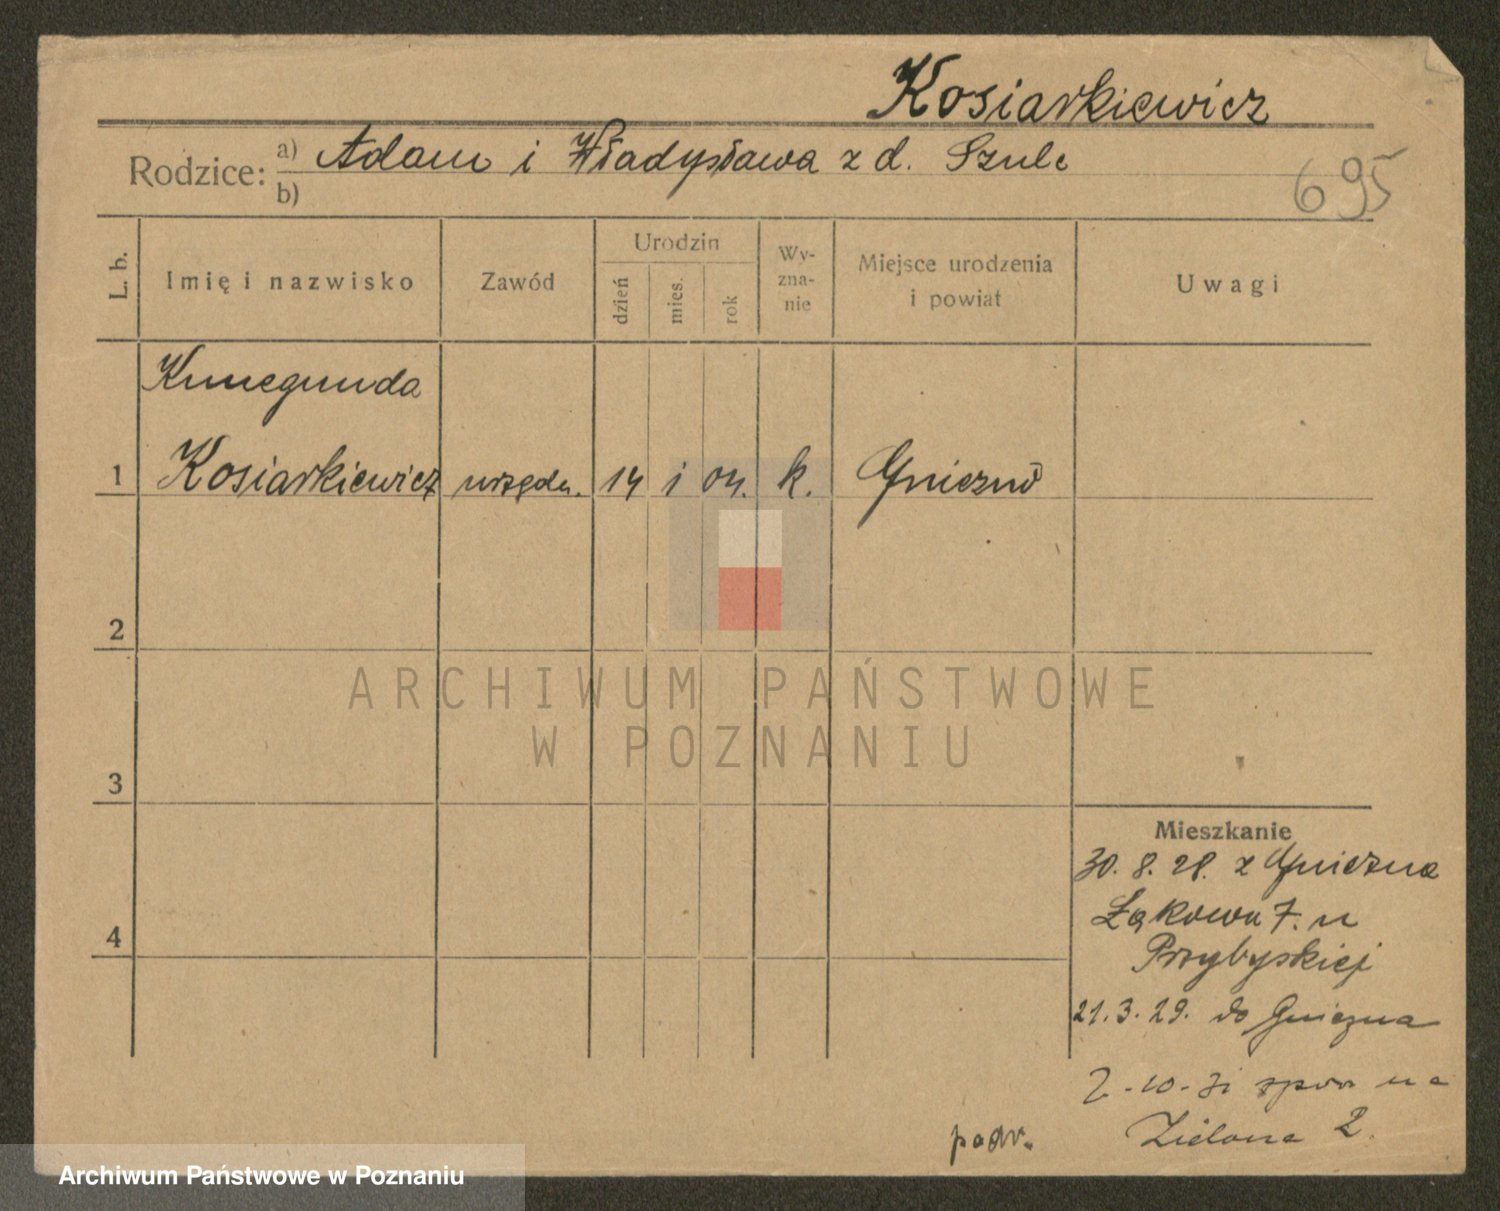 Kosiarkiewicz
Rodzice: a) Adam i Władysława z d. Szulc
b)
695
L. b.
Imię i nazwisko
Zawód
Urodzin
dzień
mies.
rok
Wy-
zna-
nie
Miejsce urodzenia
i powiat
Uwagi
Kunegunda
1 Kosiarkiewicz urzędn. 14 1 04. k. Gniezno
2
3
4
Mieszkanie
30. 8. 28. z Gniezna
Łąkowa 7. u
Przybyskiej
21. 3. 29. do Gniezna
2-10-31 na
Zielona 2.
ARCHIWUM PAŃSTWOWE
W POZNANIU
Archiwum Państwowe w Poznaniu